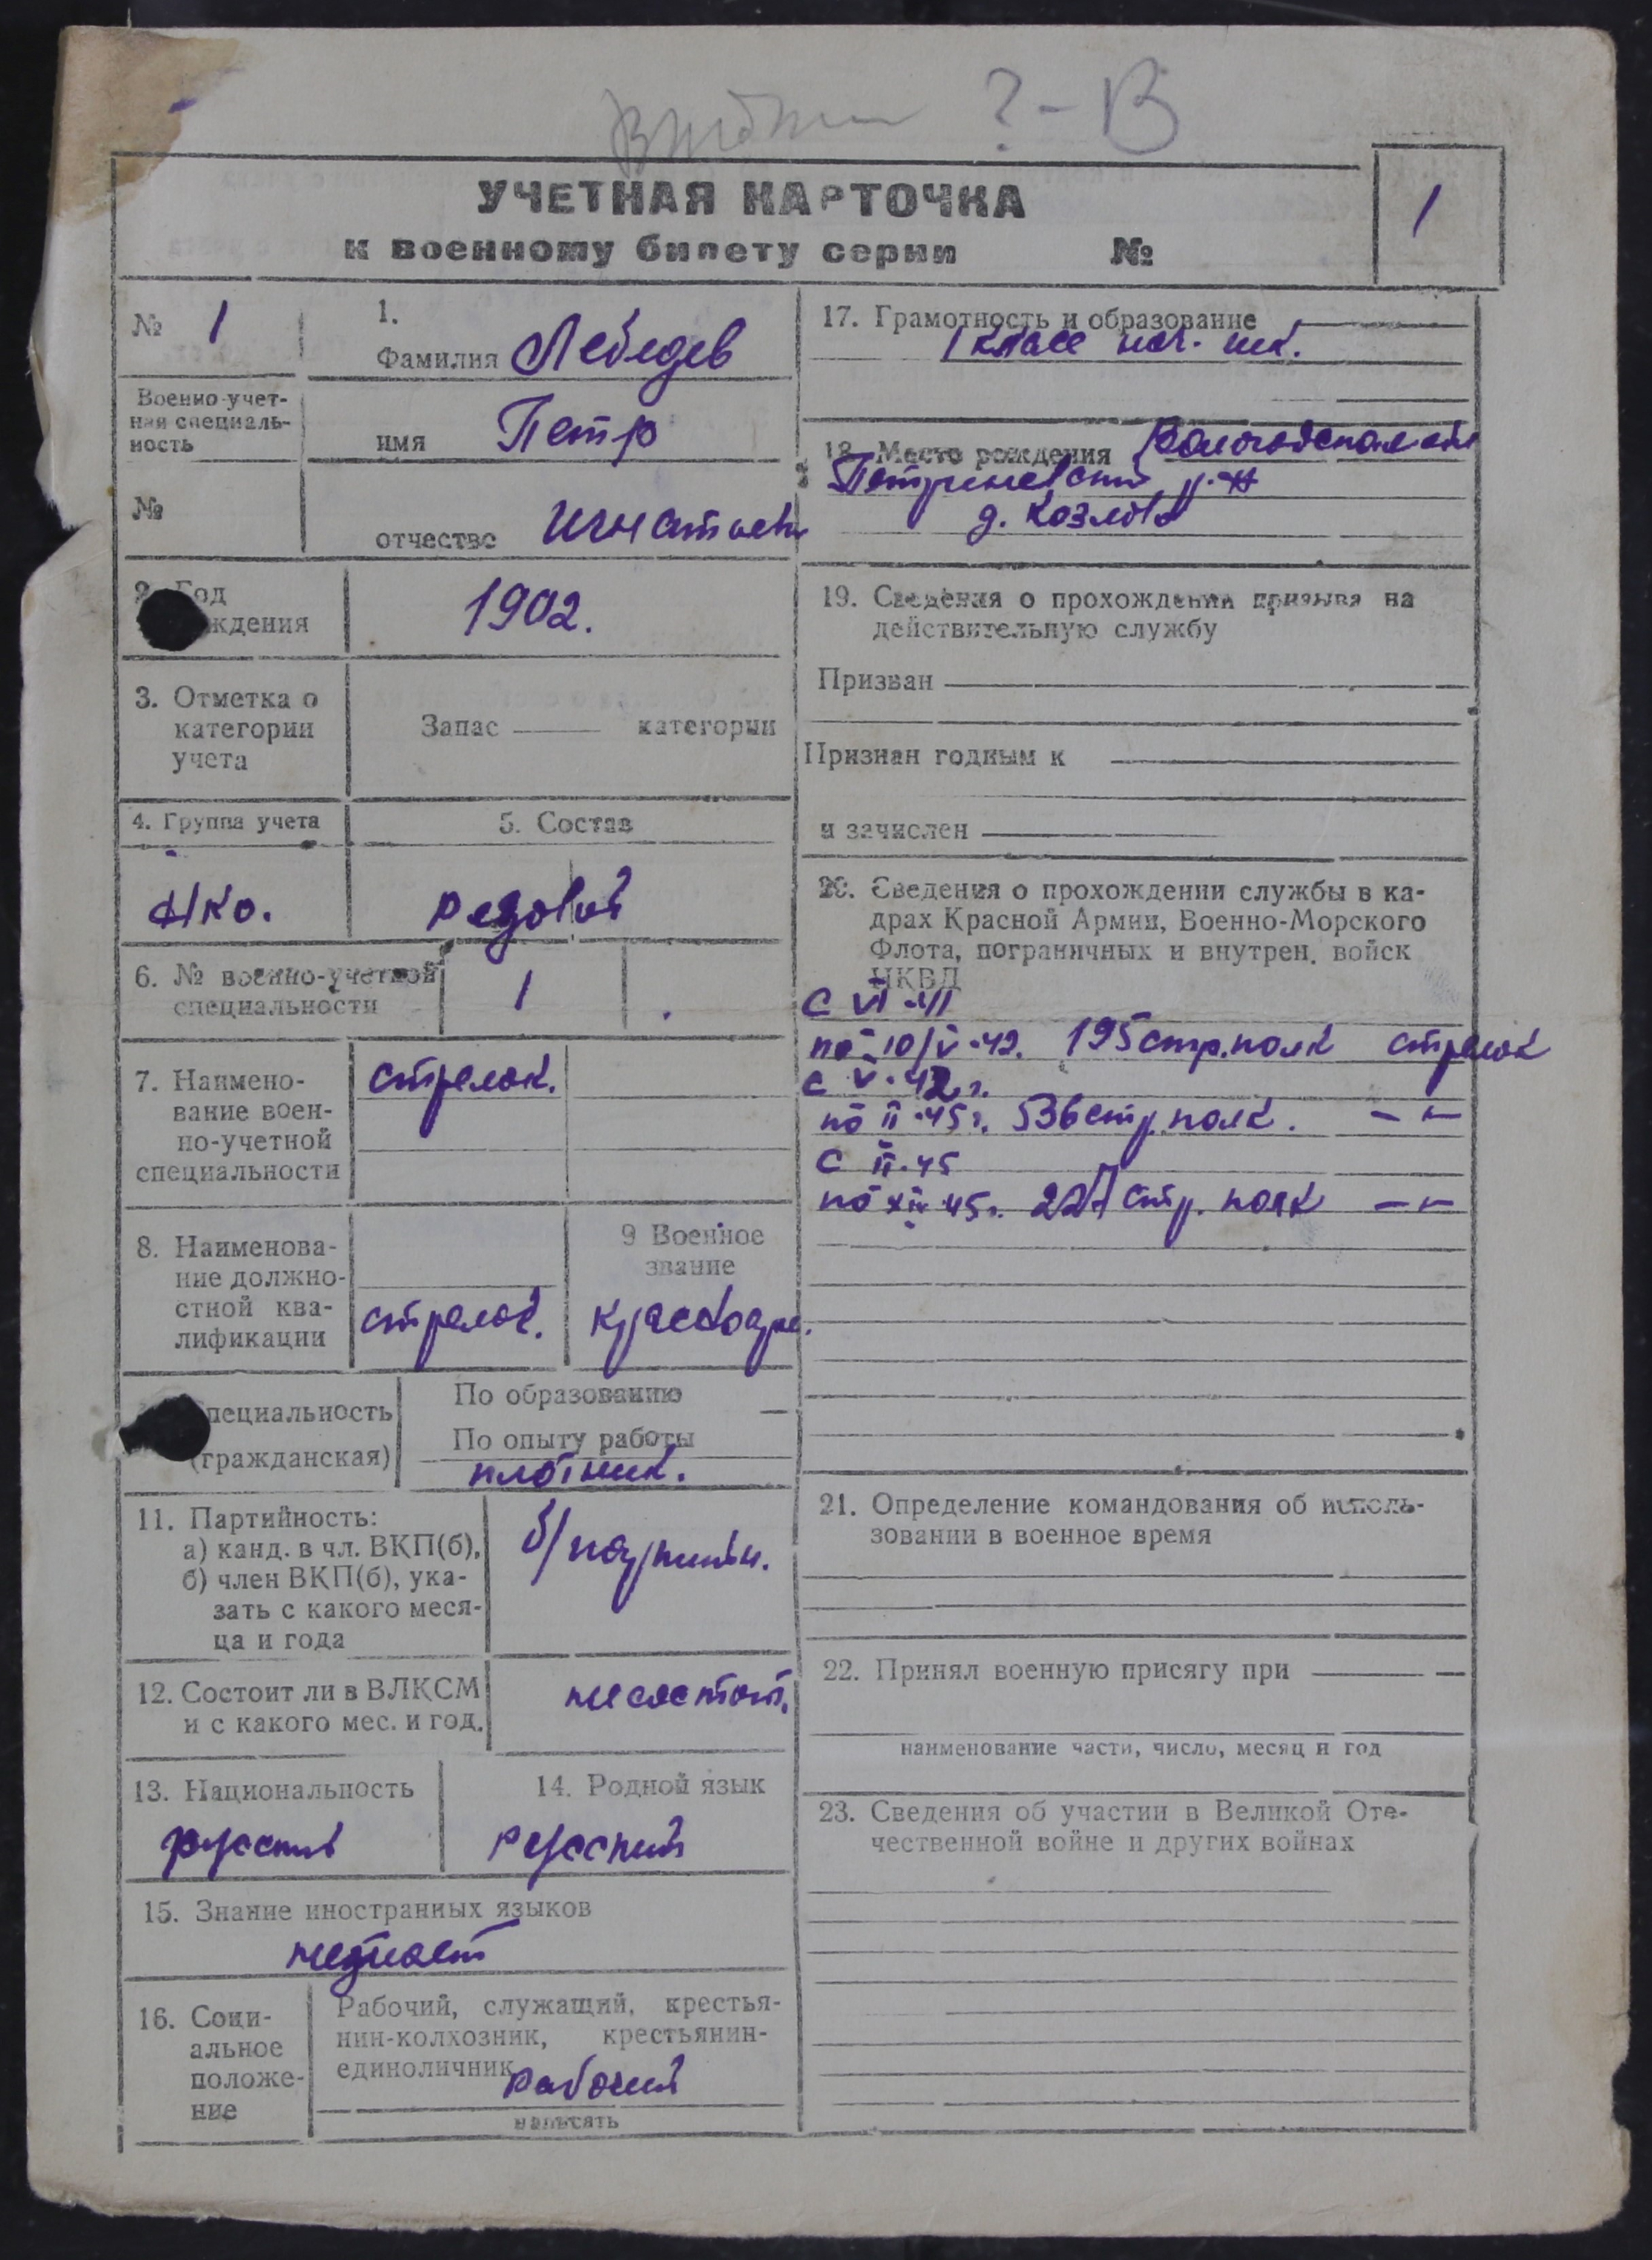 ? - В
УЧЕТНАЯ КАРТОЧКА
к военному билету серии №
1
№ 1
1.
Фамилия Лебедев
Военно-учет-
ная специаль-
ность
имя Петр
№
отчество Игнатьев
2. Год
ждения
1902.
3. Отметка о
категории
учета
Запас категории
4. Группа учета
5. Состав
НКО.
рядовой
6. № военно-учетной
специальности
1
7. Наимено-
вание воен-
но-учетной
специальности
стрелок.
8. Наименова-
ние должно-
стной ква-
лификации
стрелок.
9 Военное
звание
красноарм.
пециальность
(гражданская)
По образованию —
По опыту работы
плотник.
11. Партийность:
а) канд. в чл. ВКП(б),
б) член ВКП(б), ука-
зать с какого меся-
ца и года
б/партийн.
12. Состоит ли в ВЛКСМ
и с какого мес. и год.
не состоит.
13. Национальность
русский
14. Родной язык
русский
15. Знание иностранных языков
не знает
16. Соци-
альное
положе-
ние
Рабочий, служащий, крестья-
нин-колхозник, крестьянин-
единоличник
рабочий
написать
17. Грамотность и образование
1 класс нач. шк.
18. Место рождения Вологодская обл
Петриневский р-н
д. Козлово
19. Сведения о прохождении призыва на
действительную службу
Призван
Признан годным к
и зачислен
20. Сведения о прохождении службы в ка-
драх Красной Армии, Военно-Морского
Флота, пограничных и внутрен. войск
НКВД
с VI-41
по 10/V-42. 195 стр. полк стрелок
с V-42 г.
по II-45 г. 536 стр. полк. — " —
с II-45
по XII-45 г. 227 стр. полк — " —
21. Определение командования об исполь-
зовании в военное время
22. Принял военную присягу при
наименование части, число, месяц и год
23. Сведения об участии в Великой Оте-
чественной войне и других войнах